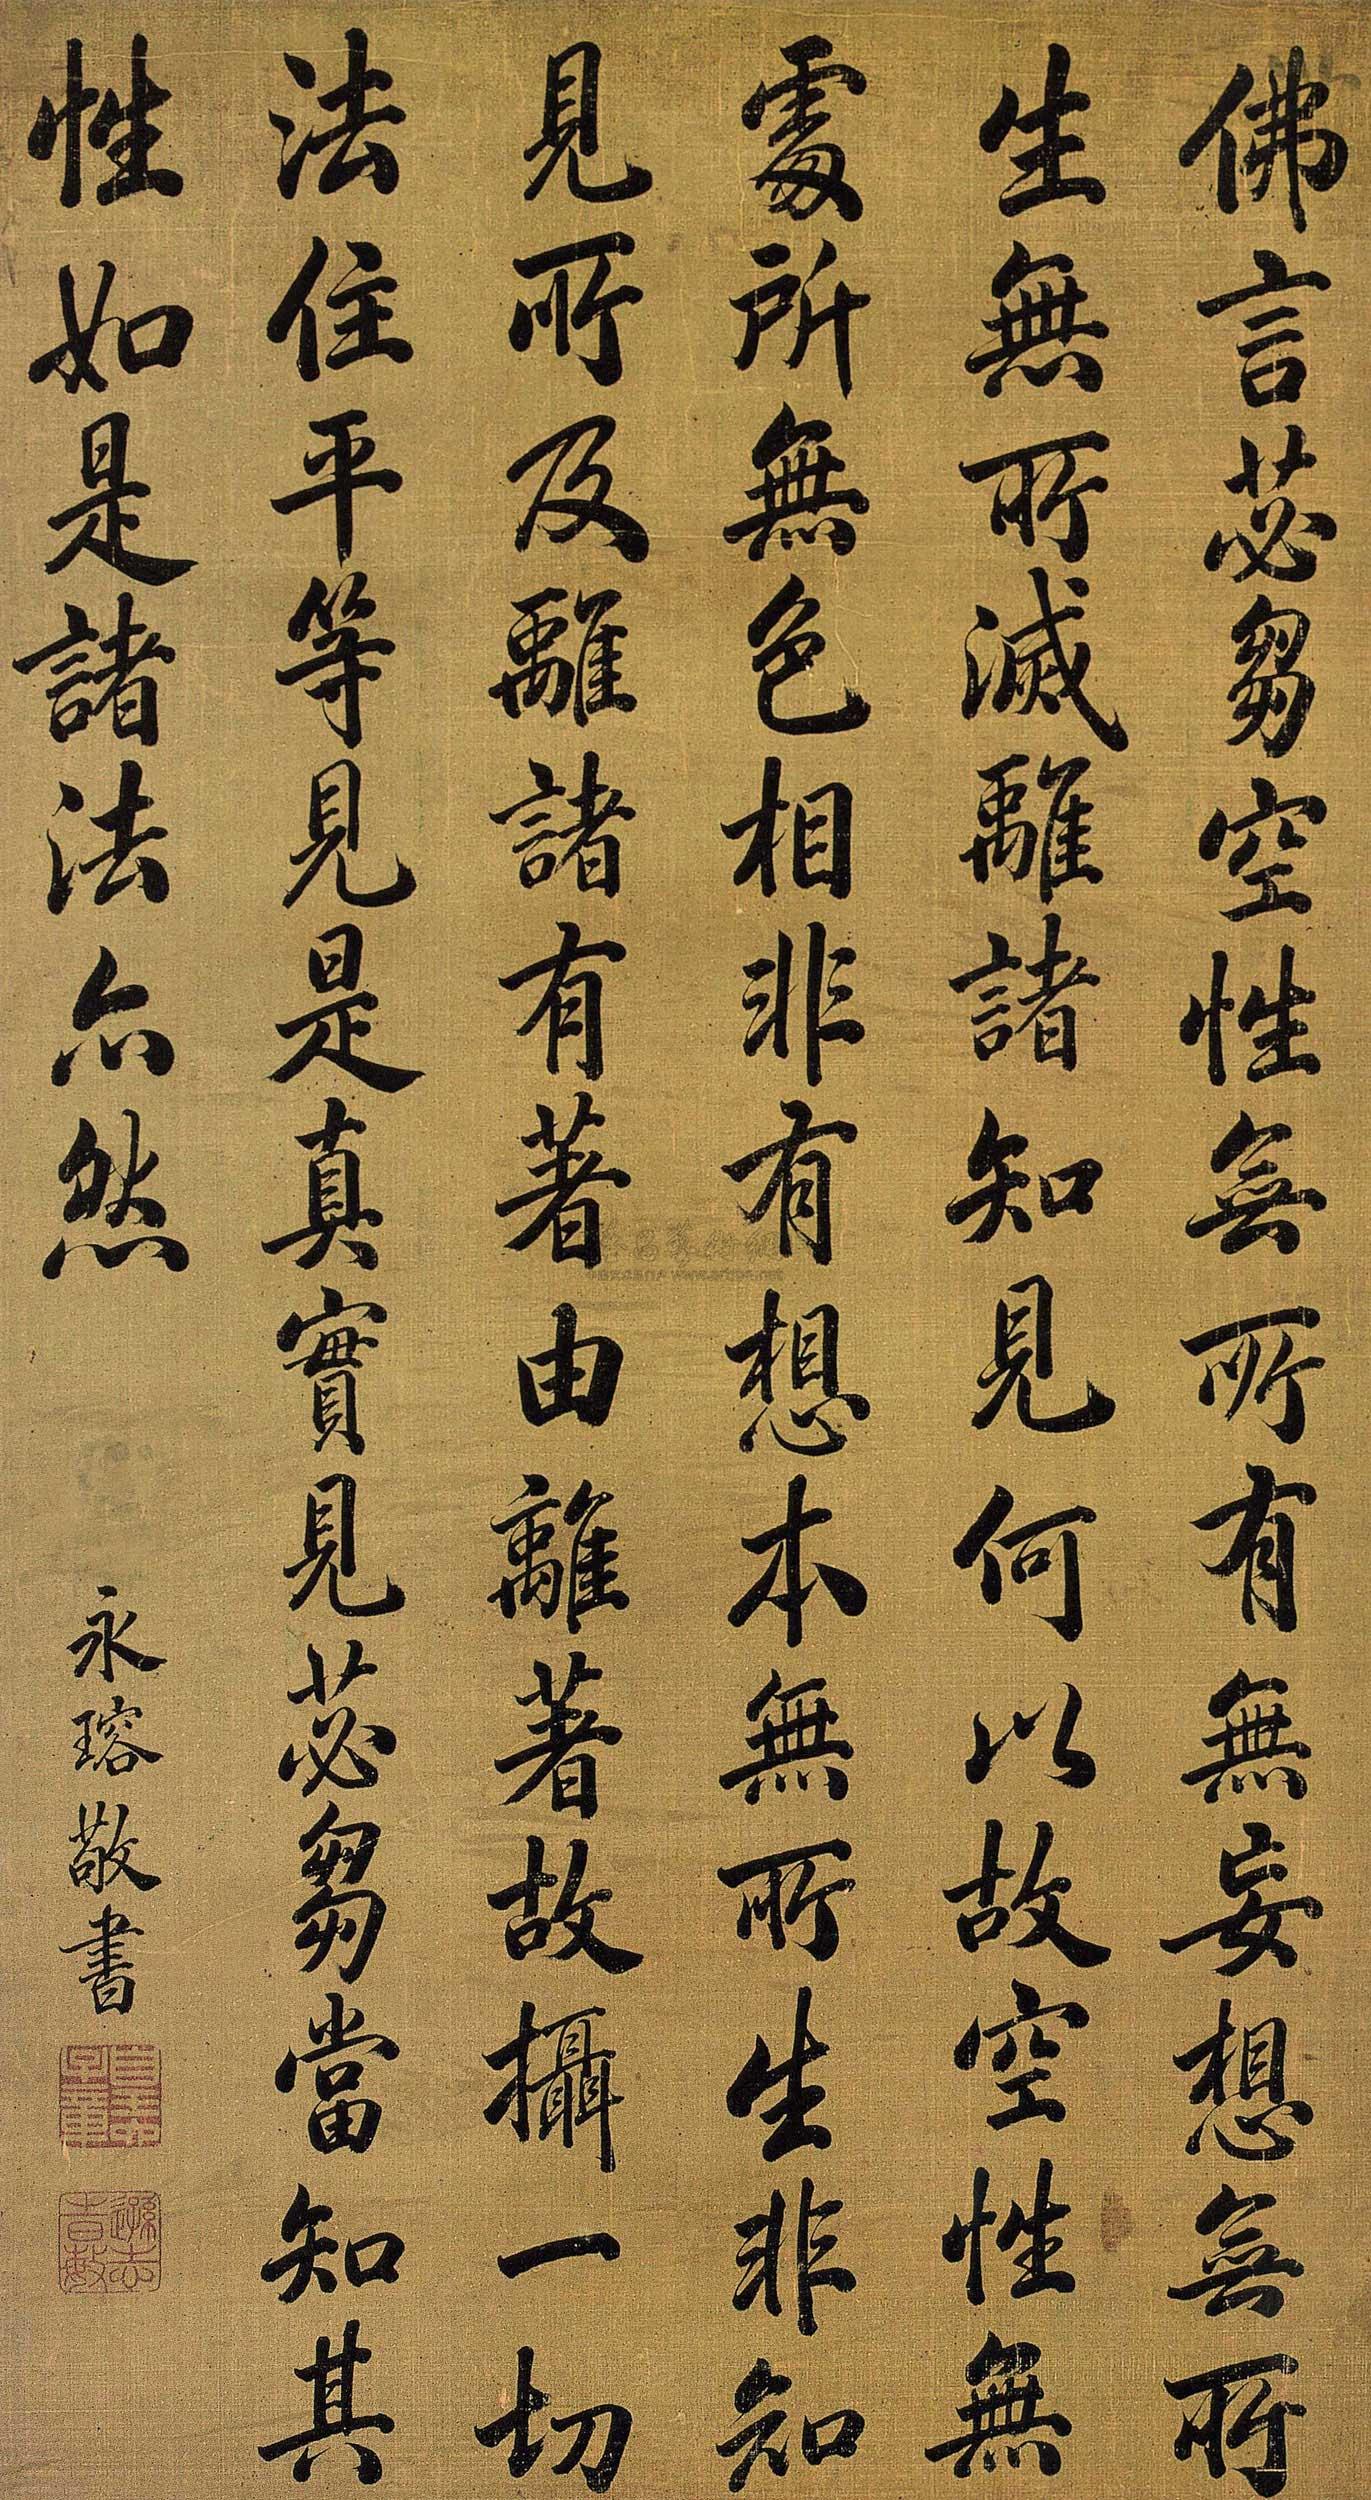 佛言苾芻空性無所有無妄想無所
生無所滅離諸知見何以故空性無
處所無色相非有想本無所生非知
見所及離諸有著由離著故攝一切
法住平等見是真實見苾芻當知其
性如是諸法亦然
永瑢敬書